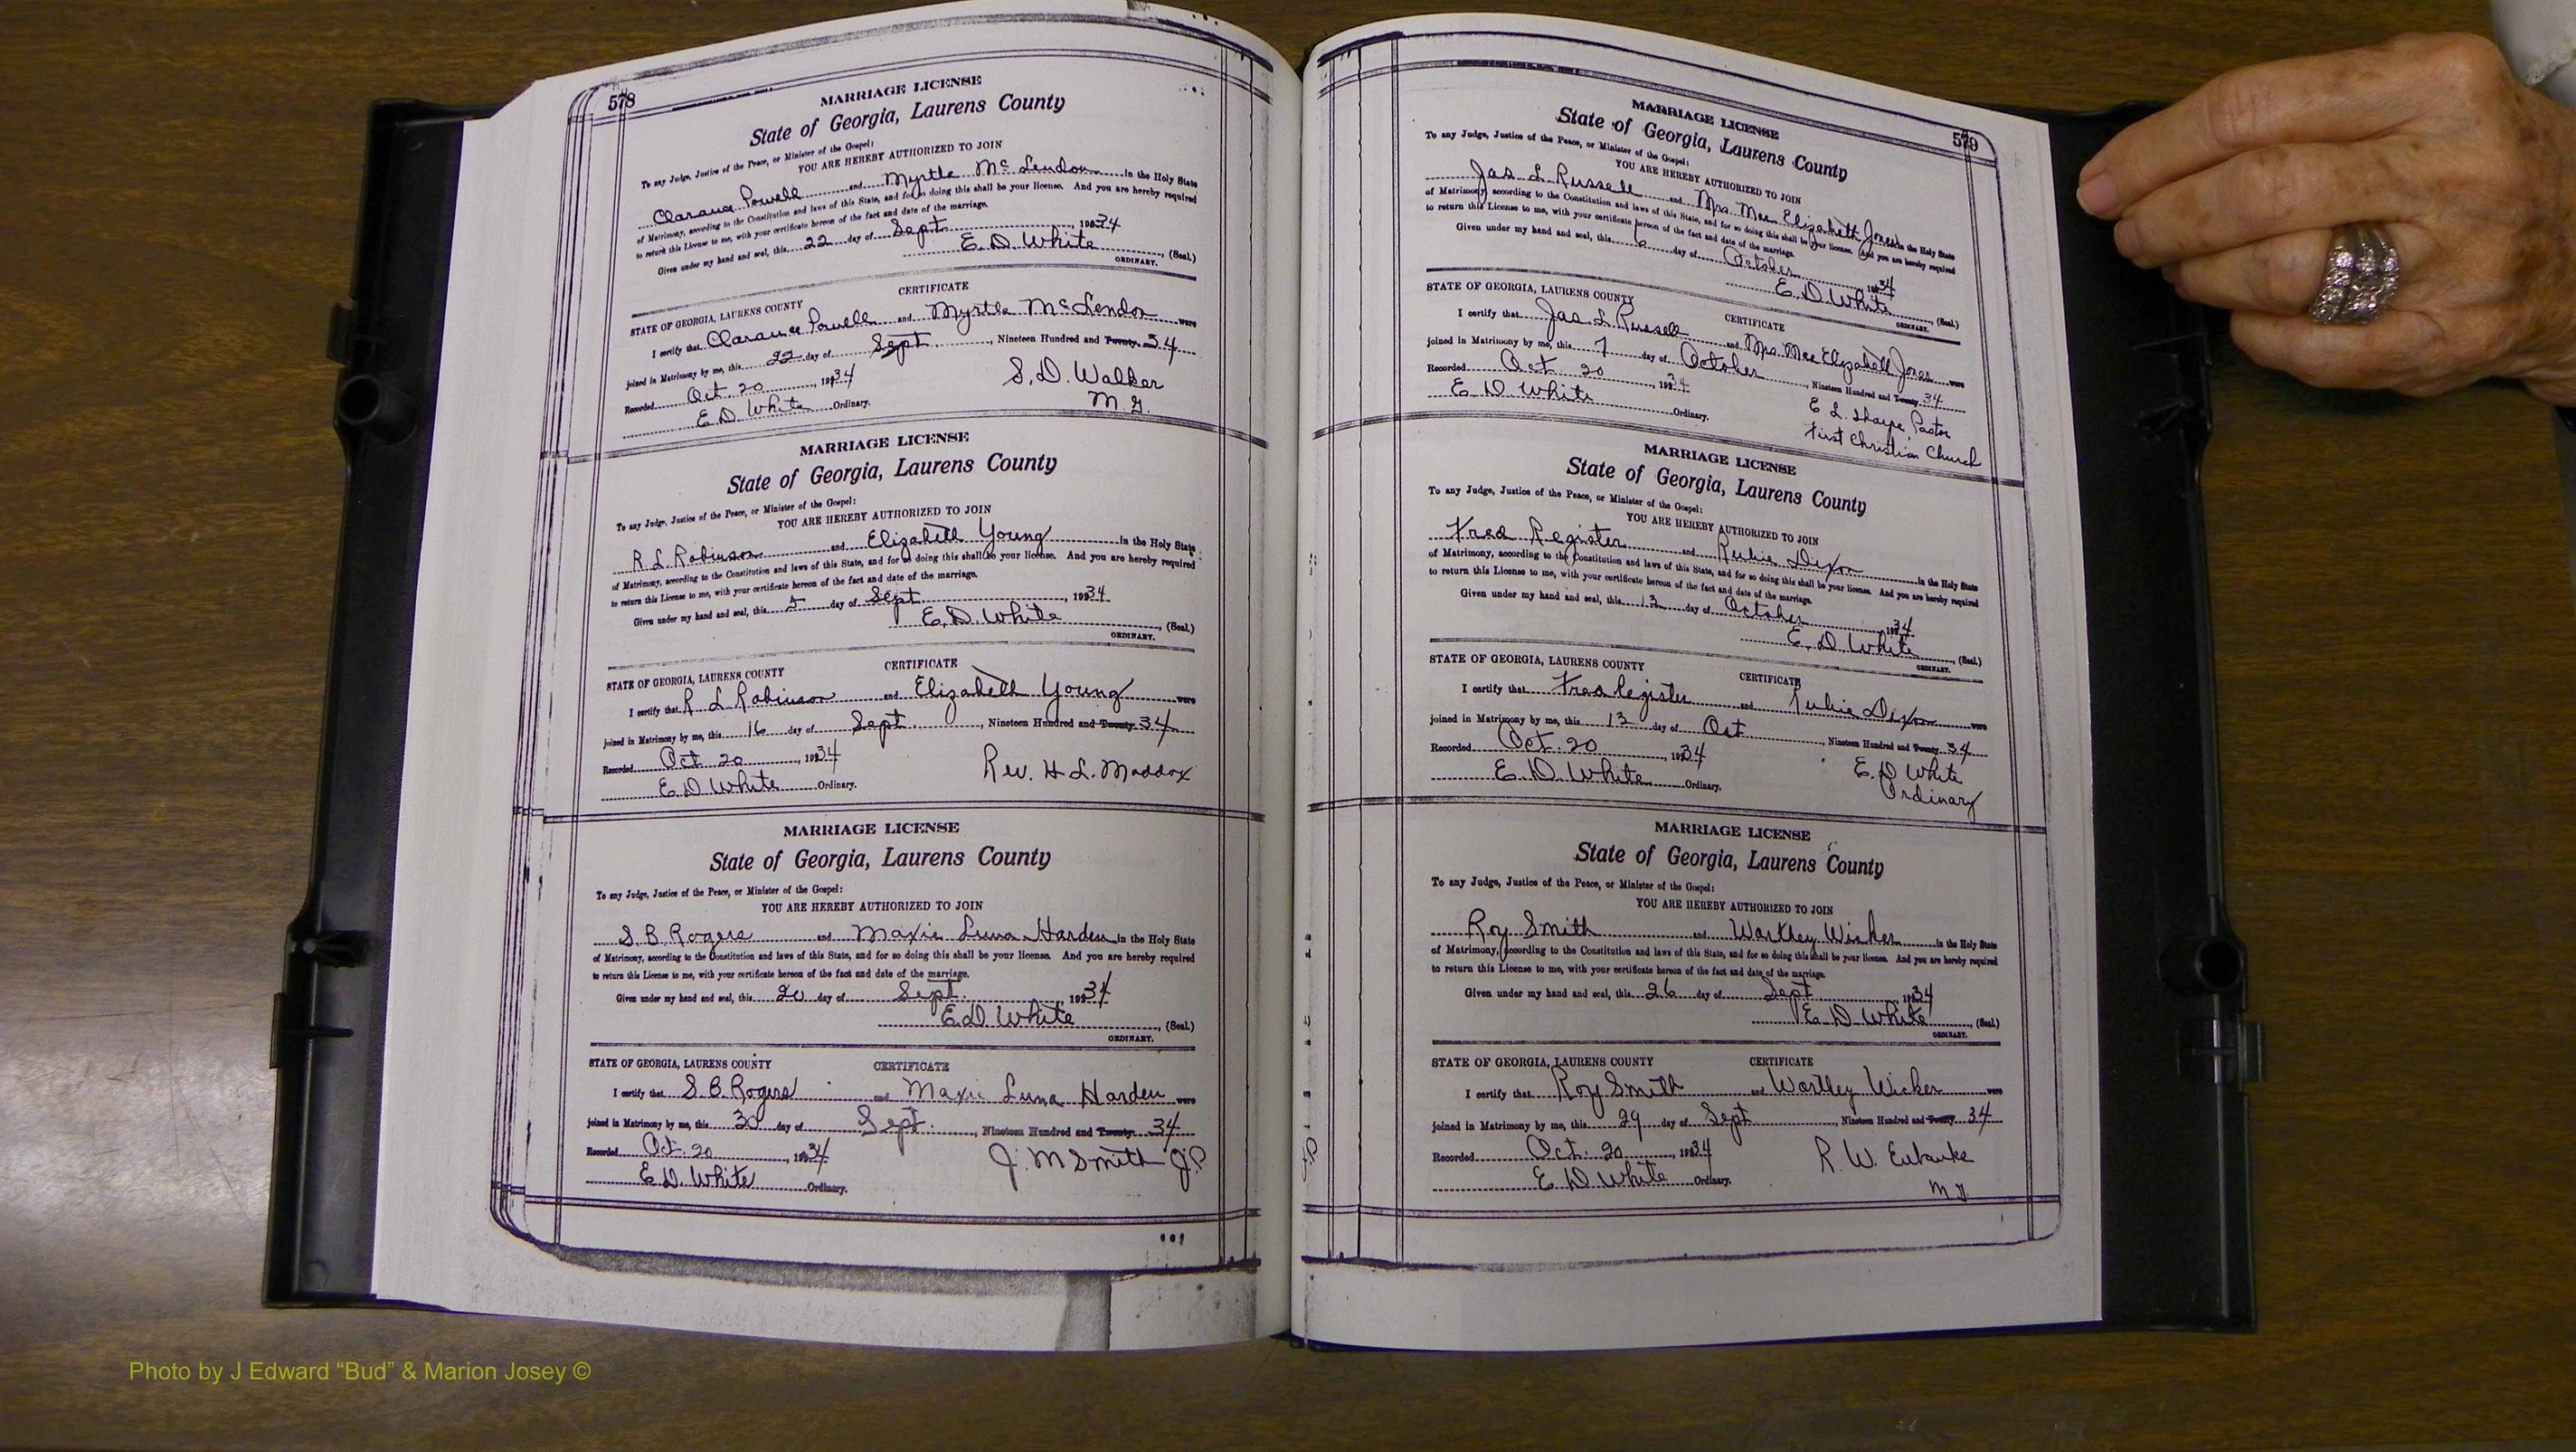 578
MARRIAGE LICENSE
State of Georgia, Laurens County
To any Judge, Justice of the Peace, or Minister of the Gospel:
YOU ARE HEREBY AUTHORIZED TO JOIN
Clarance Powell and Myrtle McLendon in the Holy State
of Matrimony, according to the Constitution and laws of this State, and for so doing this shall be your license. And you are hereby required
to return this License to me, with your certificate hereon of the fact and date of the marriage.
Given under my hand and seal, this 22 day of Sept, 1934
E. D. White, (Seal.)
ORDINARY.
CERTIFICATE
STATE OF GEORGIA, LAURENS COUNTY
I certify that Clarance Powell and Myrtle McLendon were
joined in Matrimony by me, this 22 day of Sept, Nineteen Hundred and Twenty 34
Recorded Oct. 20, 1934
S. D. Walker
E. D. White Ordinary.
M. G.
MARRIAGE LICENSE
State of Georgia, Laurens County
To any Judge, Justice of the Peace, or Minister of the Gospel:
YOU ARE HEREBY AUTHORIZED TO JOIN
R. L. Robinson and Elizabeth Young in the Holy State
of Matrimony, according to the Constitution and laws of this State, and for so doing this shall be your license. And you are hereby required
to return this License to me, with your certificate hereon of the fact and date of the marriage.
Given under my hand and seal, this 5 day of Sept, 1934
E. D. White, (Seal.)
ORDINARY.
CERTIFICATE
STATE OF GEORGIA, LAURENS COUNTY
I certify that R L Robinson and Elizabeth Young were
joined in Matrimony by me, this 16 day of Sept., Nineteen Hundred and Twenty 34
Recorded Oct 20, 1934
Rev. H. L. Maddox
E. D White Ordinary.
MARRIAGE LICENSE
State of Georgia, Laurens County
To any Judge, Justice of the Peace, or Minister of the Gospel:
YOU ARE HEREBY AUTHORIZED TO JOIN
S. B. Rogers and Maxie Luna Harden in the Holy State
of Matrimony, according to the Constitution and laws of this State, and for so doing this shall be your license. And you are hereby required
to return this License to me, with your certificate hereon of the fact and date of the marriage.
Given under my hand and seal, this 20 day of Sept., 1934
E. D. White, (Seal.)
ORDINARY.
STATE OF GEORGIA, LAURENS COUNTY CERTIFICATE
I certify that S. B. Rogers and Maxie Luna Harden were
joined in Matrimony by me, this 30 day of Sept., Nineteen Hundred and Twenty 34
Recorded Oct. 20, 1934
J. M Smith J.P
E. D. White Ordinary.
579
MARRIAGE LICENSE
State of Georgia, Laurens County
To any Judge, Justice of the Peace, or Minister of the Gospel:
YOU ARE HEREBY AUTHORIZED TO JOIN
Jas L Russell and Mrs Mae Elizabeth Jones in the Holy State
of Matrimony, according to the Constitution and laws of this State, and for so doing this shall be your license. And you are hereby required
to return this License to me, with your certificate hereon of the fact and date of the marriage.
Given under my hand and seal, this 6 day of October 1934
E. D. White, (Seal.)
ORDINARY.
STATE OF GEORGIA, LAURENS COUNTY
CERTIFICATE
I certify that Jas L Russell and Mrs. Mae Elizabeth Jones were
joined in Matrimony by me, this 7 day of October, Nineteen Hundred and Twenty 34
Recorded Oct. 20, 1934
E. L. Sharpe, Pastor
First Christian Church
E D White Ordinary.
MARRIAGE LICENSE
State of Georgia, Laurens County
To any Judge, Justice of the Peace, or Minister of the Gospel:
YOU ARE HEREBY AUTHORIZED TO JOIN
Fred Register and Rubie Dixon in the Holy State
of Matrimony, according to the Constitution and laws of this State, and for so doing this shall be your license. And you are hereby required
to return this License to me, with your certificate hereon of the fact and date of the marriage.
Given under my hand and seal, this 13 day of October 1934
E. D. White, (Seal.)
ORDINARY.
STATE OF GEORGIA, LAURENS COUNTY
CERTIFICATE
I certify that Fred Register and Rubie Dixon were
joined in Matrimony by me, this 13 day of Oct, Nineteen Hundred and Twenty 34
Recorded Oct. 20, 1934
E. D White
Ordinary
E. D. White Ordinary.
MARRIAGE LICENSE
State of Georgia, Laurens County
To any Judge, Justice of the Peace, or Minister of the Gospel:
YOU ARE HEREBY AUTHORIZED TO JOIN
Roy Smith and Wicker in the Holy State
of Matrimony, according to the Constitution and laws of this State, and for so doing this shall be your license. And you are hereby required
to return this License to me, with your certificate hereon of the fact and date of the marriage.
Given under my hand and seal, this 26 day of Sept, 1934
E. D White, (Seal.)
ORDINARY.
STATE OF GEORGIA, LAURENS COUNTY CERTIFICATE
I certify that Roy Smith and Wortley Wicker were
joined in Matrimony by me, this 29 day of Sept, Nineteen Hundred and Twenty 34
Recorded Oct. 20, 1934
R. W. Eubanks
E D White Ordinary.
M G
Photo by J Edward “Bud” & Marion Josey ©